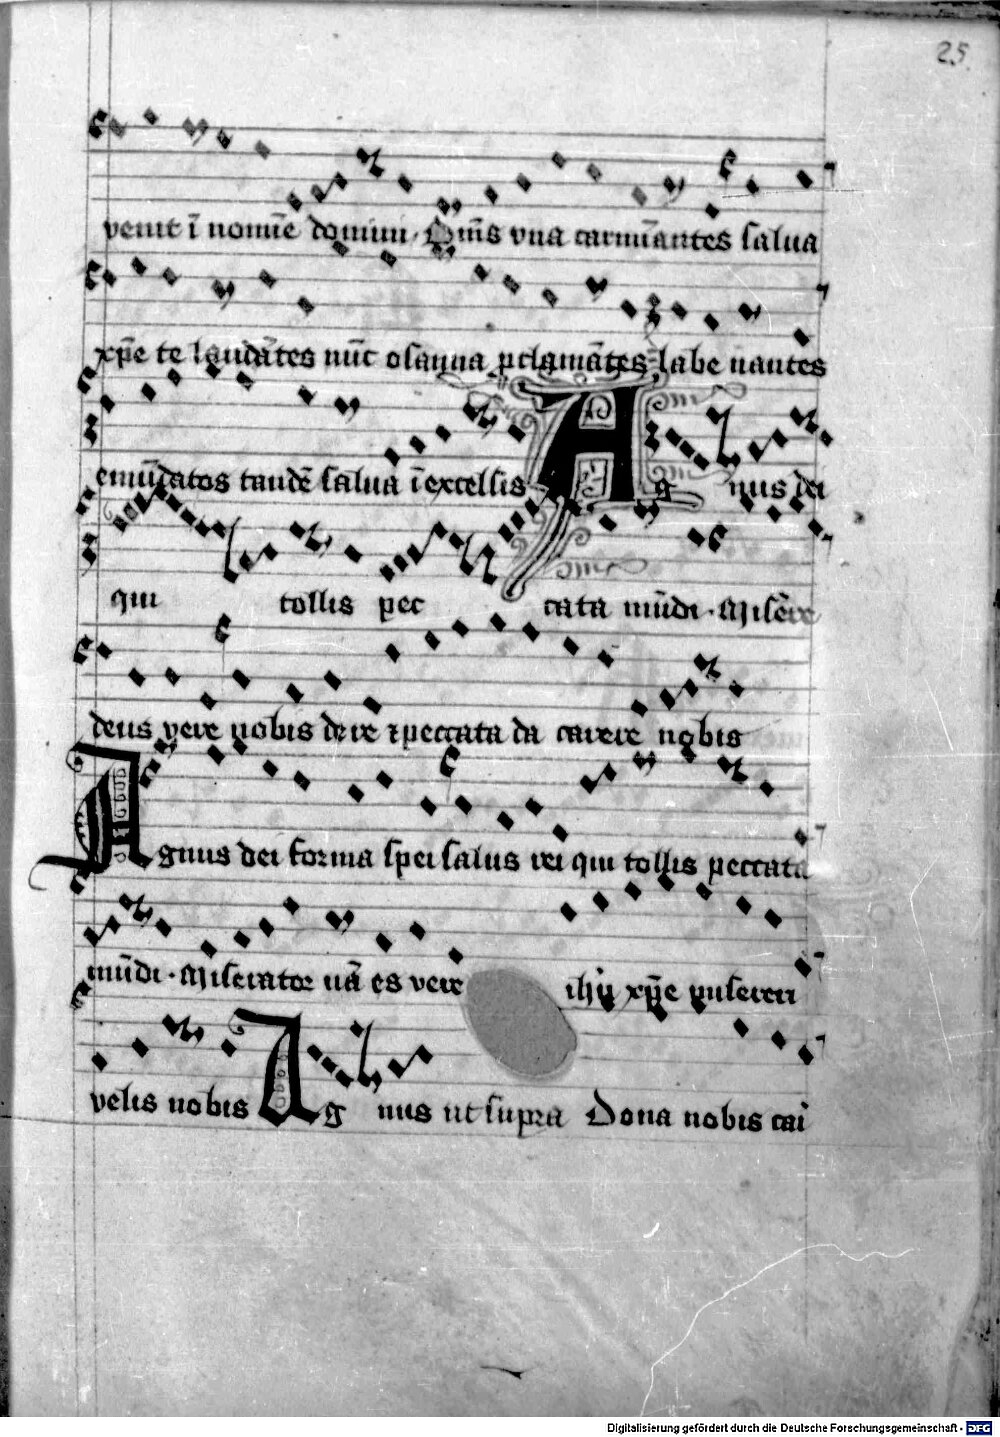 25.
venit ī nomīe domini · Om̄s vna carmīantes salua
xp̄e te laudātes nūc osanna ꝓclamātes labe nantes
emūdatos tandē salua ī excelsis Ag nus dei
qui tollis pec cata mūdi · Misēre
deus vere nobis dere ⁊ peccata da carere nobis
Agnus dei forma spei salus rei qui tollis peccata
mūdi · Miserator nā es vere ihū xp̄e misereri
velis nobis Ag nus ut supra Dona nobis cai
Digitalisierung gefördert durch die Deutsche Forschungsgemeinschaft - DFG